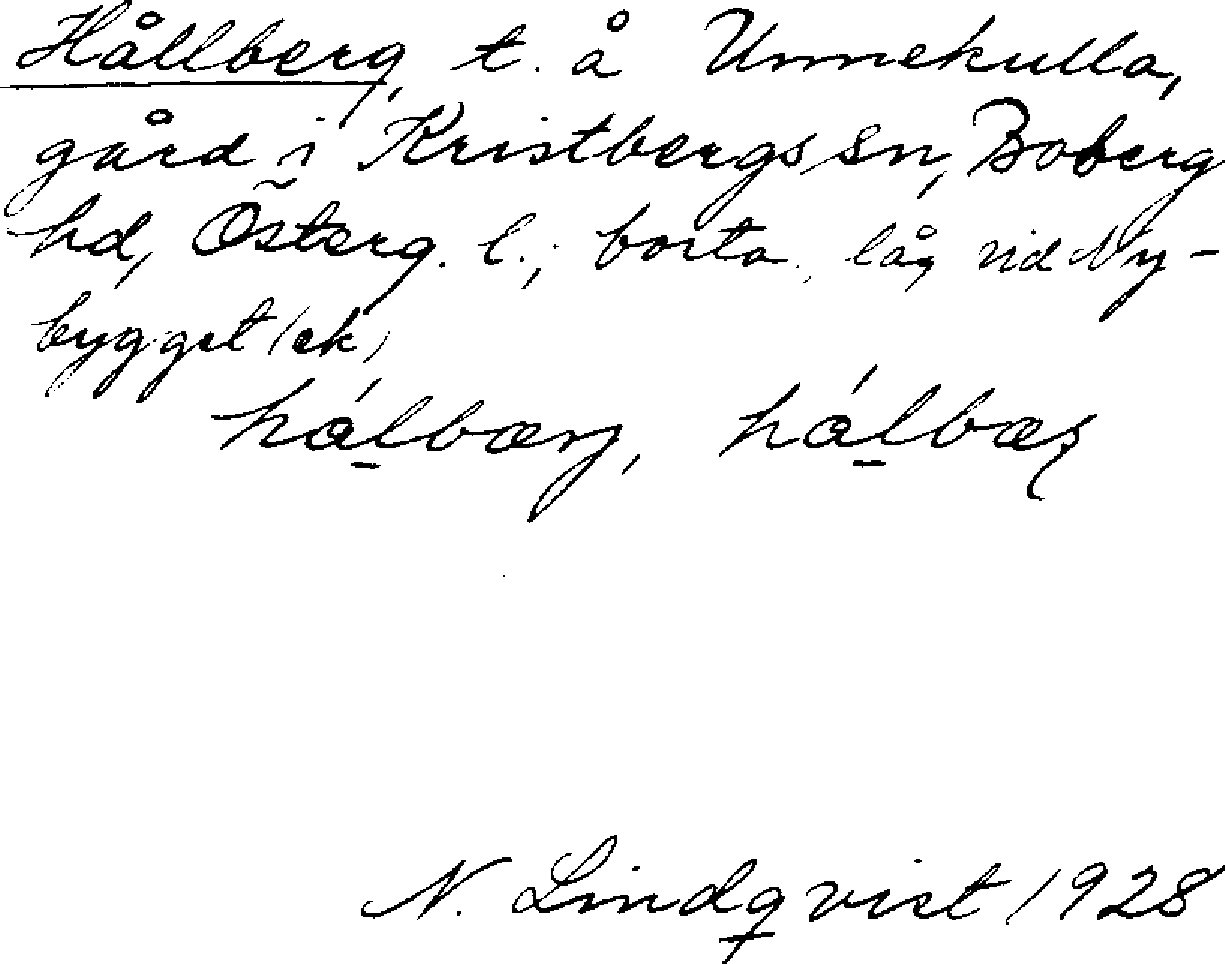 Hållberg, t. å Unnekulla,
gård i Kristbergs sn, Boberg
hd, Österg. l.; borta, låg vid Ny-
bygget (ek)
hálbærj, hálbæř
N. Lindqvist 1928